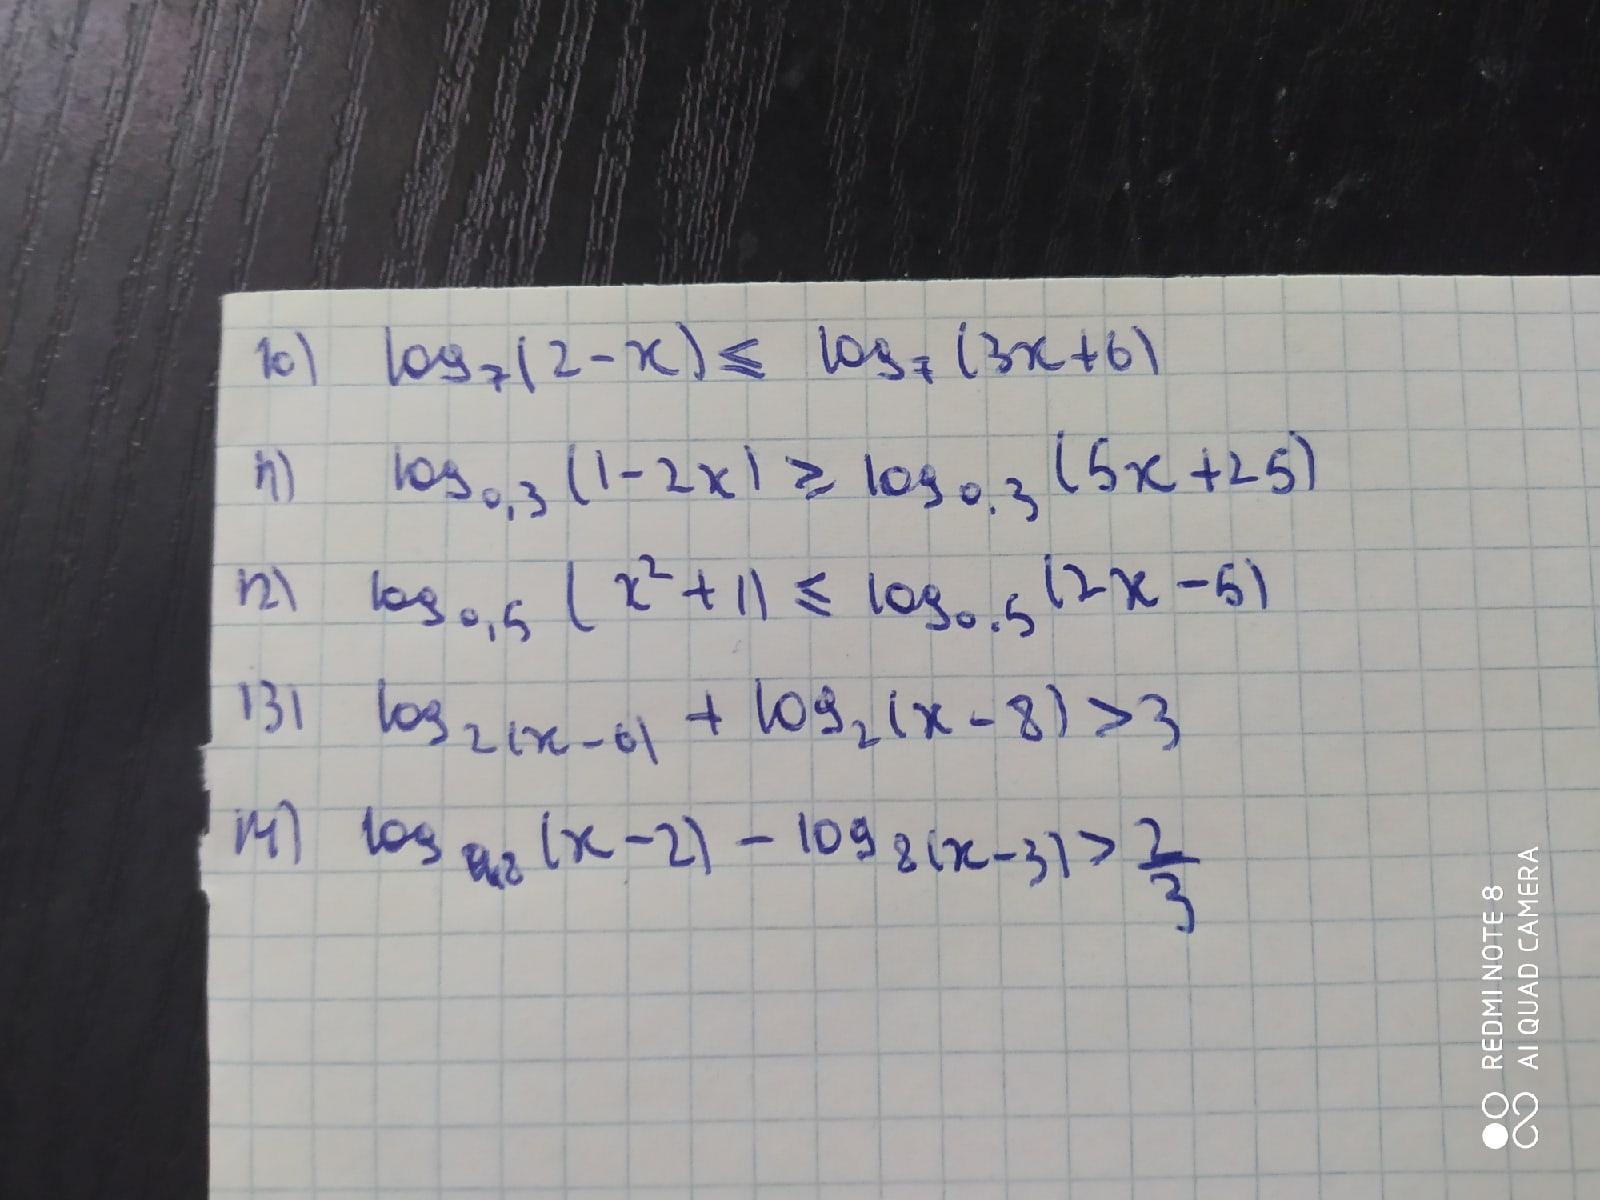 10) log₇(2-x) ≤ log₇(3x+6)
11) log₀,₃(1-2x) ≥ log₀.₃(5x+25)
12) log₀,₅(x²+1) ≤ log₀.₅(2x-5)
13) log₂(x-6) + log₂(x-8) > 3
14) log₈(x-2) - log₈(x-3) > 2/3
REDMI NOTE 8
AI QUAD CAMERA